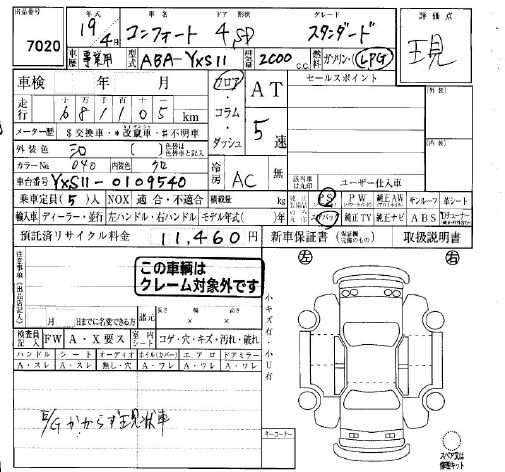 出品番号 7020
年式 19年4月 車名 コンフォート ドア 4 形状 SD グレード スタンダード 評価点 現
車歴 事業用 型式 ABA-YXS11 排気量 2000 C.C. 燃料 ガソリン・LPG
車検 年 月 フロア・コラム・ダッシュ AT 5速 セールスポイント
走行 681105 km
メーター歴 $交換車・*改竄車・#不明車
外装色 ( )
カラーNo. 040 内装色
車台番号 YXS11-0109540 冷房 AC 無 ユーザー仕入車
乗車定員(5)人 NOX 適合・不適合 積載量 kg PS PW 純正AW サンルーフ 革シート
輸入車 ディーラー・並行 左ハンドル・右ハンドル モデル年式( )年 エアバッグ 純正TV 純正ナビ ABS
預託済リサイクル料金 11,460円 新車保証書 取扱説明書
この車輌は
クレーム対象外です
左 右
月 日までに名変できる方 諸元 長さ 幅 高さ
検査員記入 FW A・X要ス 室内シート コゲ・穴・キズ・汚れ・破れ
ハンドル シート オーディオ ホイル(カバー) エアロ ドアミラー
A・スレ A・スレ 無し・穴 A・ワレ A・ワレ A・ワレ
小キズ有・小U有
E/Gかからず現状車
キーコーナー
スペア又は
修理キット